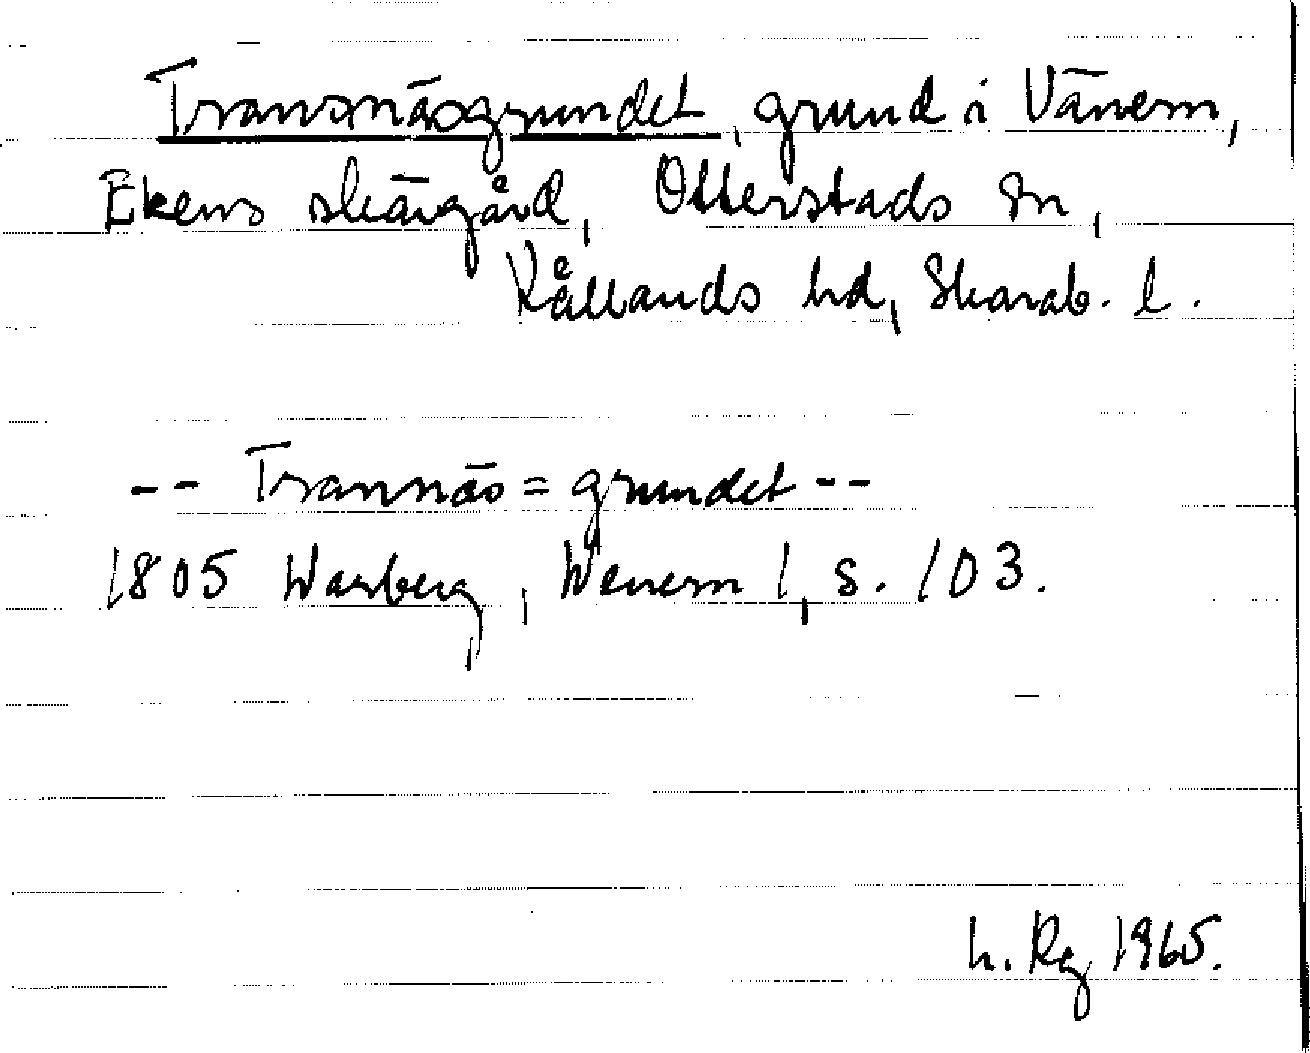 Transnäsgrundet, grund i Vänern,
Ekens skärgård, Otterstads sn,
Kållands hd, Skarab. l.
-- Trannäs=grundet --
1805 Warberg, Wenern 1, s. 103.
h. Rg 1965.